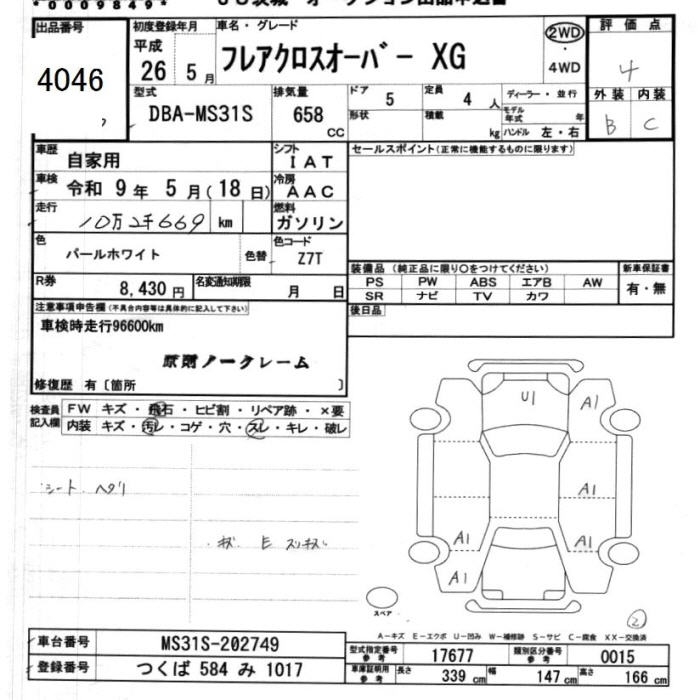 *0009849*
出品番号 初度登録年月 車名・グレード 評価点
4046 平成 26 5 月 フレアクロスオーバー XG 2WD ・ 4WD 4
型式 排気量 ドア 定員 ディーラー・並行 外装 内装
DBA-MS31S 658 CC 5 4 人 B C
形状 積載 kg モデル年式 年 ハンドル 左・右
車歴 自家用 シフト IAT セールスポイント(正常に機能するものに限ります)
車検 令和 9 年 5 月(18 日) 冷房 AAC
走行 10万2千669 km 燃料 ガソリン
色 パールホワイト 色替 色コード Z7T
装備品(純正品に限り○をつけてください) 新車保証書
PS PW ABS エアB AW 有・無
SR ナビ TV カワ
R券 8,430 円 名変通知期限 月 日
後日品
注意事項申告欄(不具合内容等は具体的に記入して下さい)
車検時走行96600km
原則ノークレーム
修復歴 有〔箇所 〕
検査員記入欄 FW キズ・飛石・ヒビ割・リペア跡・×要
内装 キズ・汚レ・コゲ・穴・スレ・キレ・破レ
U1 A1
シート ヘタリ
A1
A1 A1
A1
スペア
2
A-キズ E-エクボ U-凹み W-補修跡 S-サビ C-腐食 XX-交換済
車台番号 MS31S-202749 型式指定番号 参考 17677 類別区分番号 参考 0015
登録番号 つくば 584 み 1017 車庫証明用 参考 長さ 339 cm 幅 147 cm 高さ 166 cm